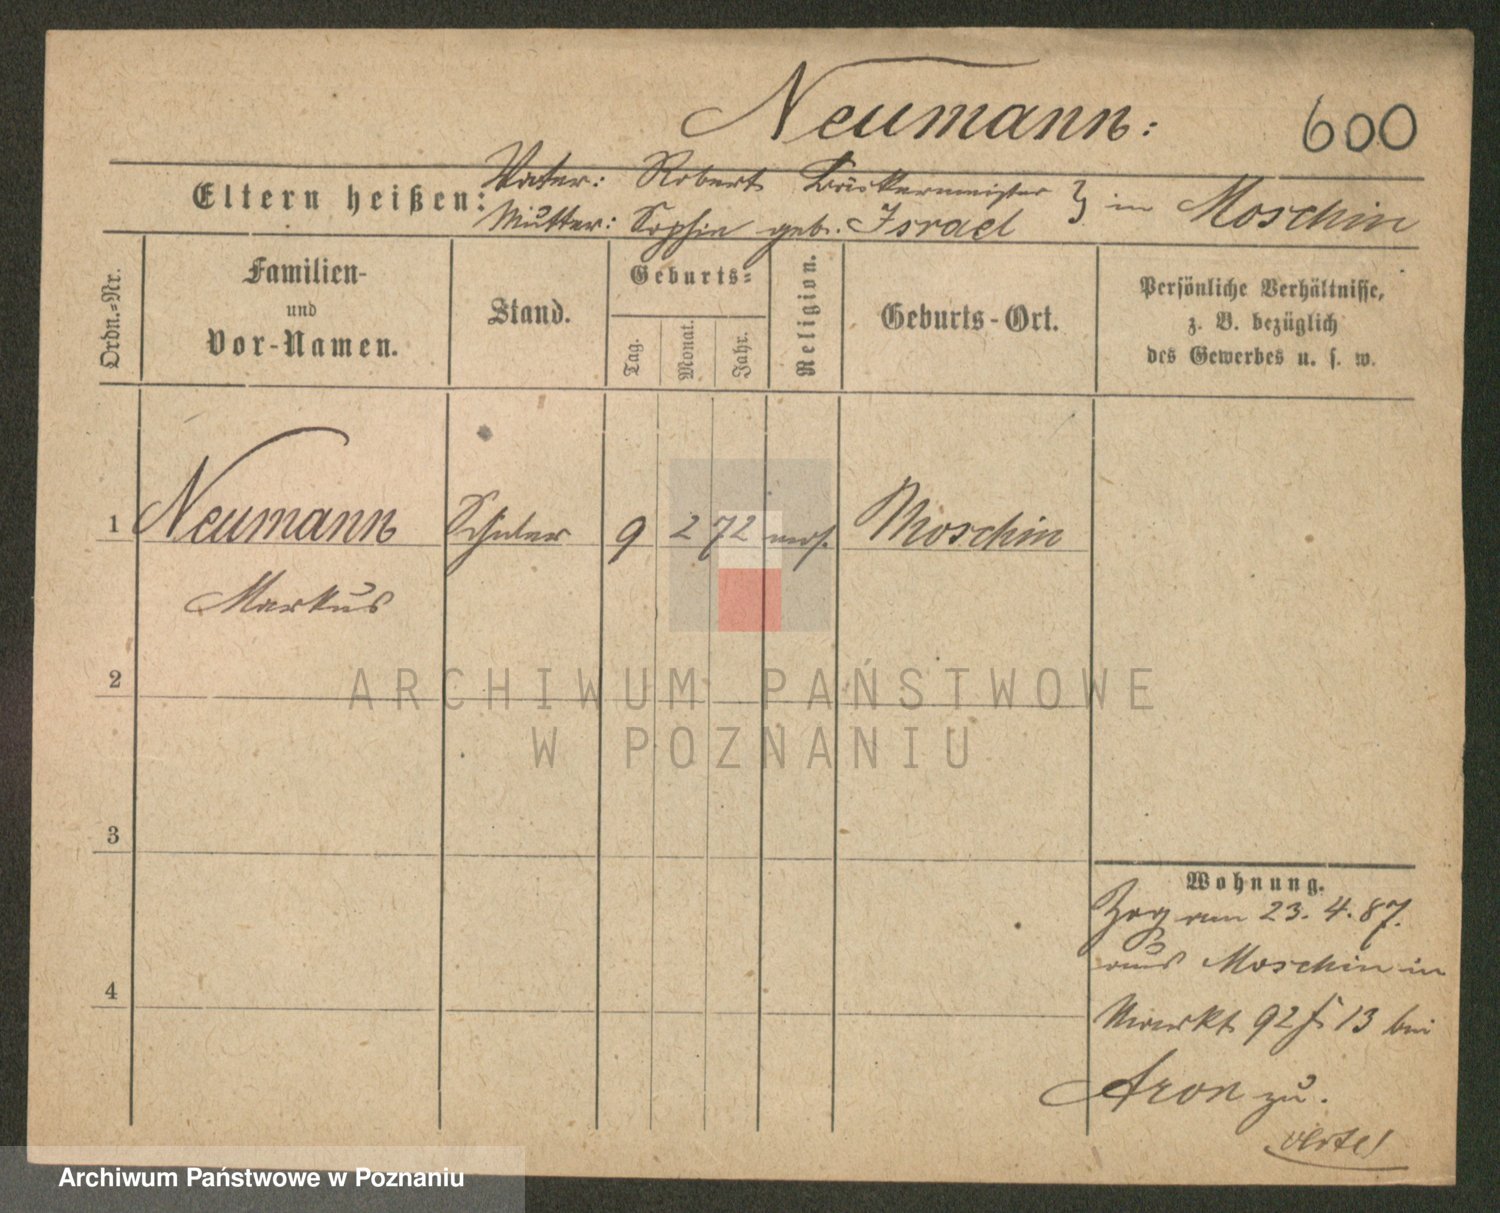 Neumann: 600
Eltern heißen: Vater: Robert Bäckermeister } in Moschin
Mutter: Sophie geb. Israel
Ordn.-Nr.
Familien-
und
Vor-Namen.
Stand.
Geburts-
Tag. Monat. Jahr.
Religion.
Geburts-Ort.
Persönliche Verhältnisse,
z. B. bezüglich
des Gewerbes u. s. w.
1 Neumann Schüler 9 2 72 mos. Moschin
Markus
2
3
4
Wohnung.
Zog am 23. 4. 87.
aus Moschin in
Markt 92 13 bei
Aron zu.
ARCHIWUM PAŃSTWOWE
W POZNANIU
Archiwum Państwowe w Poznaniu